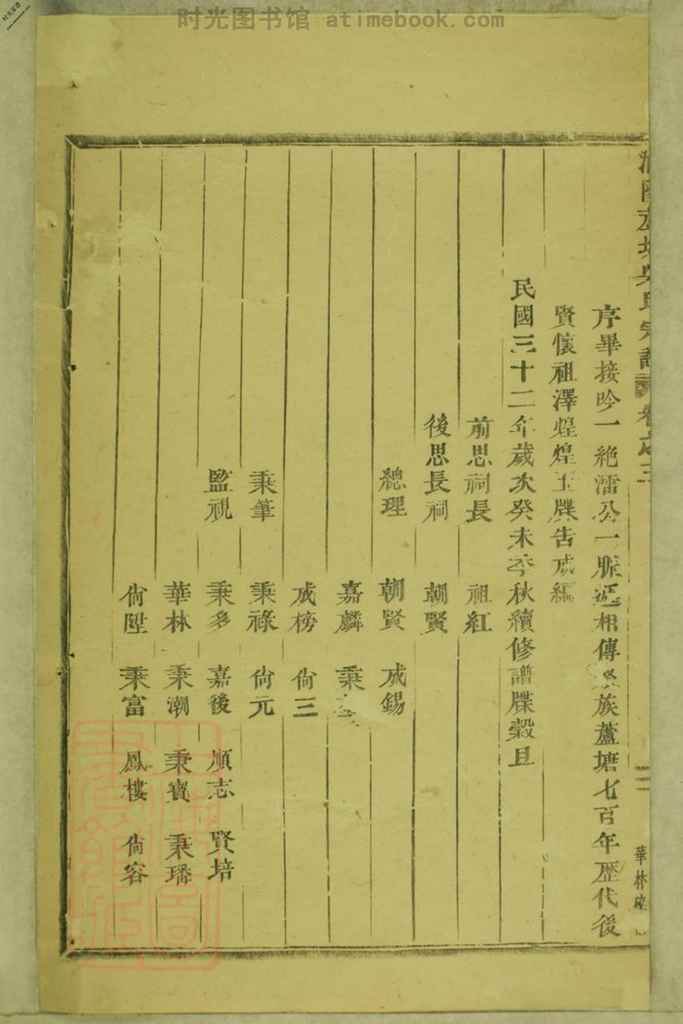 时光图书馆 atimebook.com
吳氏宗譜 卷之三
華林
序畢接吟一絶濡公一脈遞相傳 族蘆塘七百年歷代後
賢懷祖澤煌煌玉牒告成編
民國三十二年歲次癸未季秋續修譜牒穀旦
前思祠長 祖紅
後思長祠 朝賢
總理 朝賢 成錫
嘉麟 秉
成榜 尙三
秉筆 秉祿 尙元
監視 秉多 嘉後 順志 賢培
華林 秉潮 秉賓 秉璠
尙陞 秉富 鳳樓 尙容